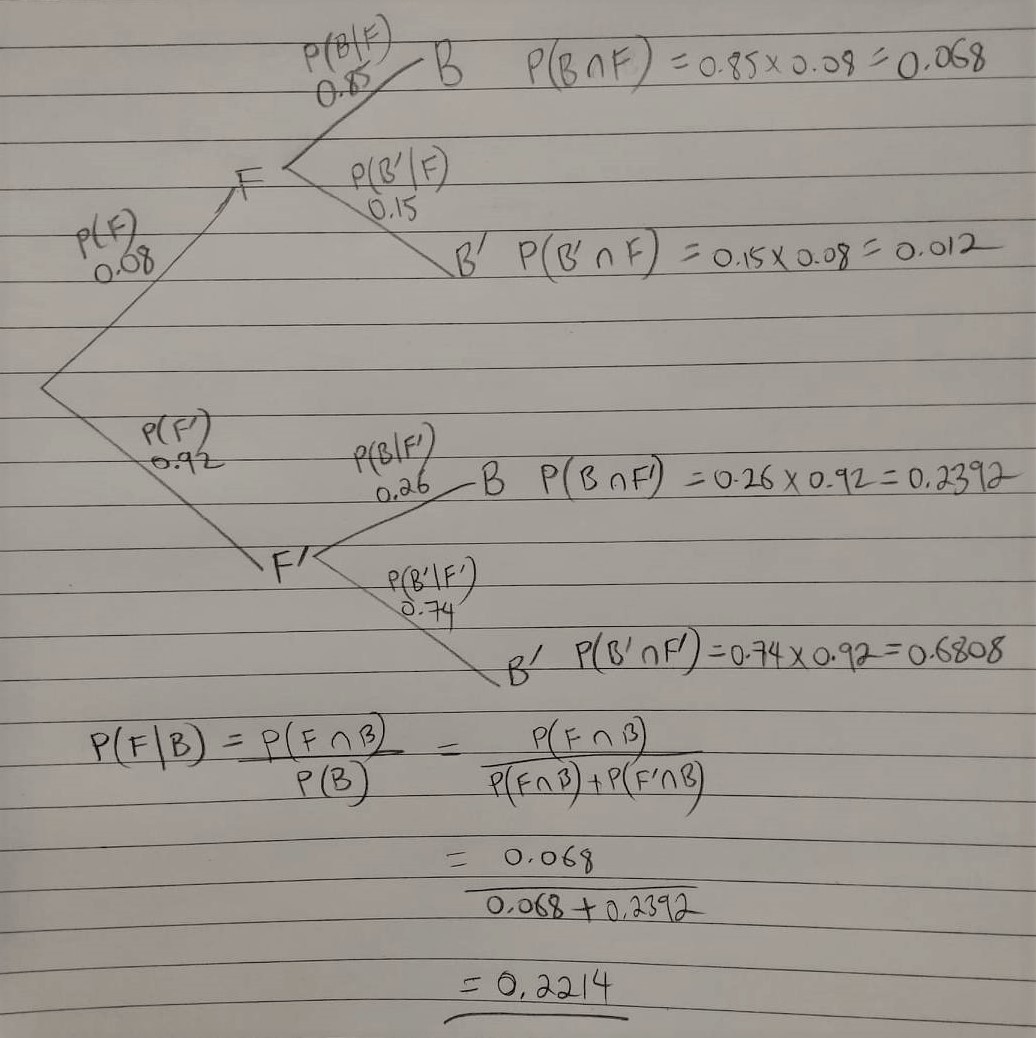 P(B|F)
0.85
B P(B∩F) = 0.85 x 0.08 = 0.068
F
P(B'|F)
0.15
P(F)
0.08
B' P(B'∩F) = 0.15 x 0.08 = 0.012
P(F')
0.92
P(B|F')
0.26
B P(B∩F') = 0.26 x 0.92 = 0.2392
F'
P(B'|F')
0.74
B' P(B'∩F') = 0.74 x 0.92 = 0.6808
P(F|B) = P(F∩B) = P(F∩B)
P(B) P(F∩B) + P(F'∩B)
= 0.068
0.068 + 0.2392
= 0.2214